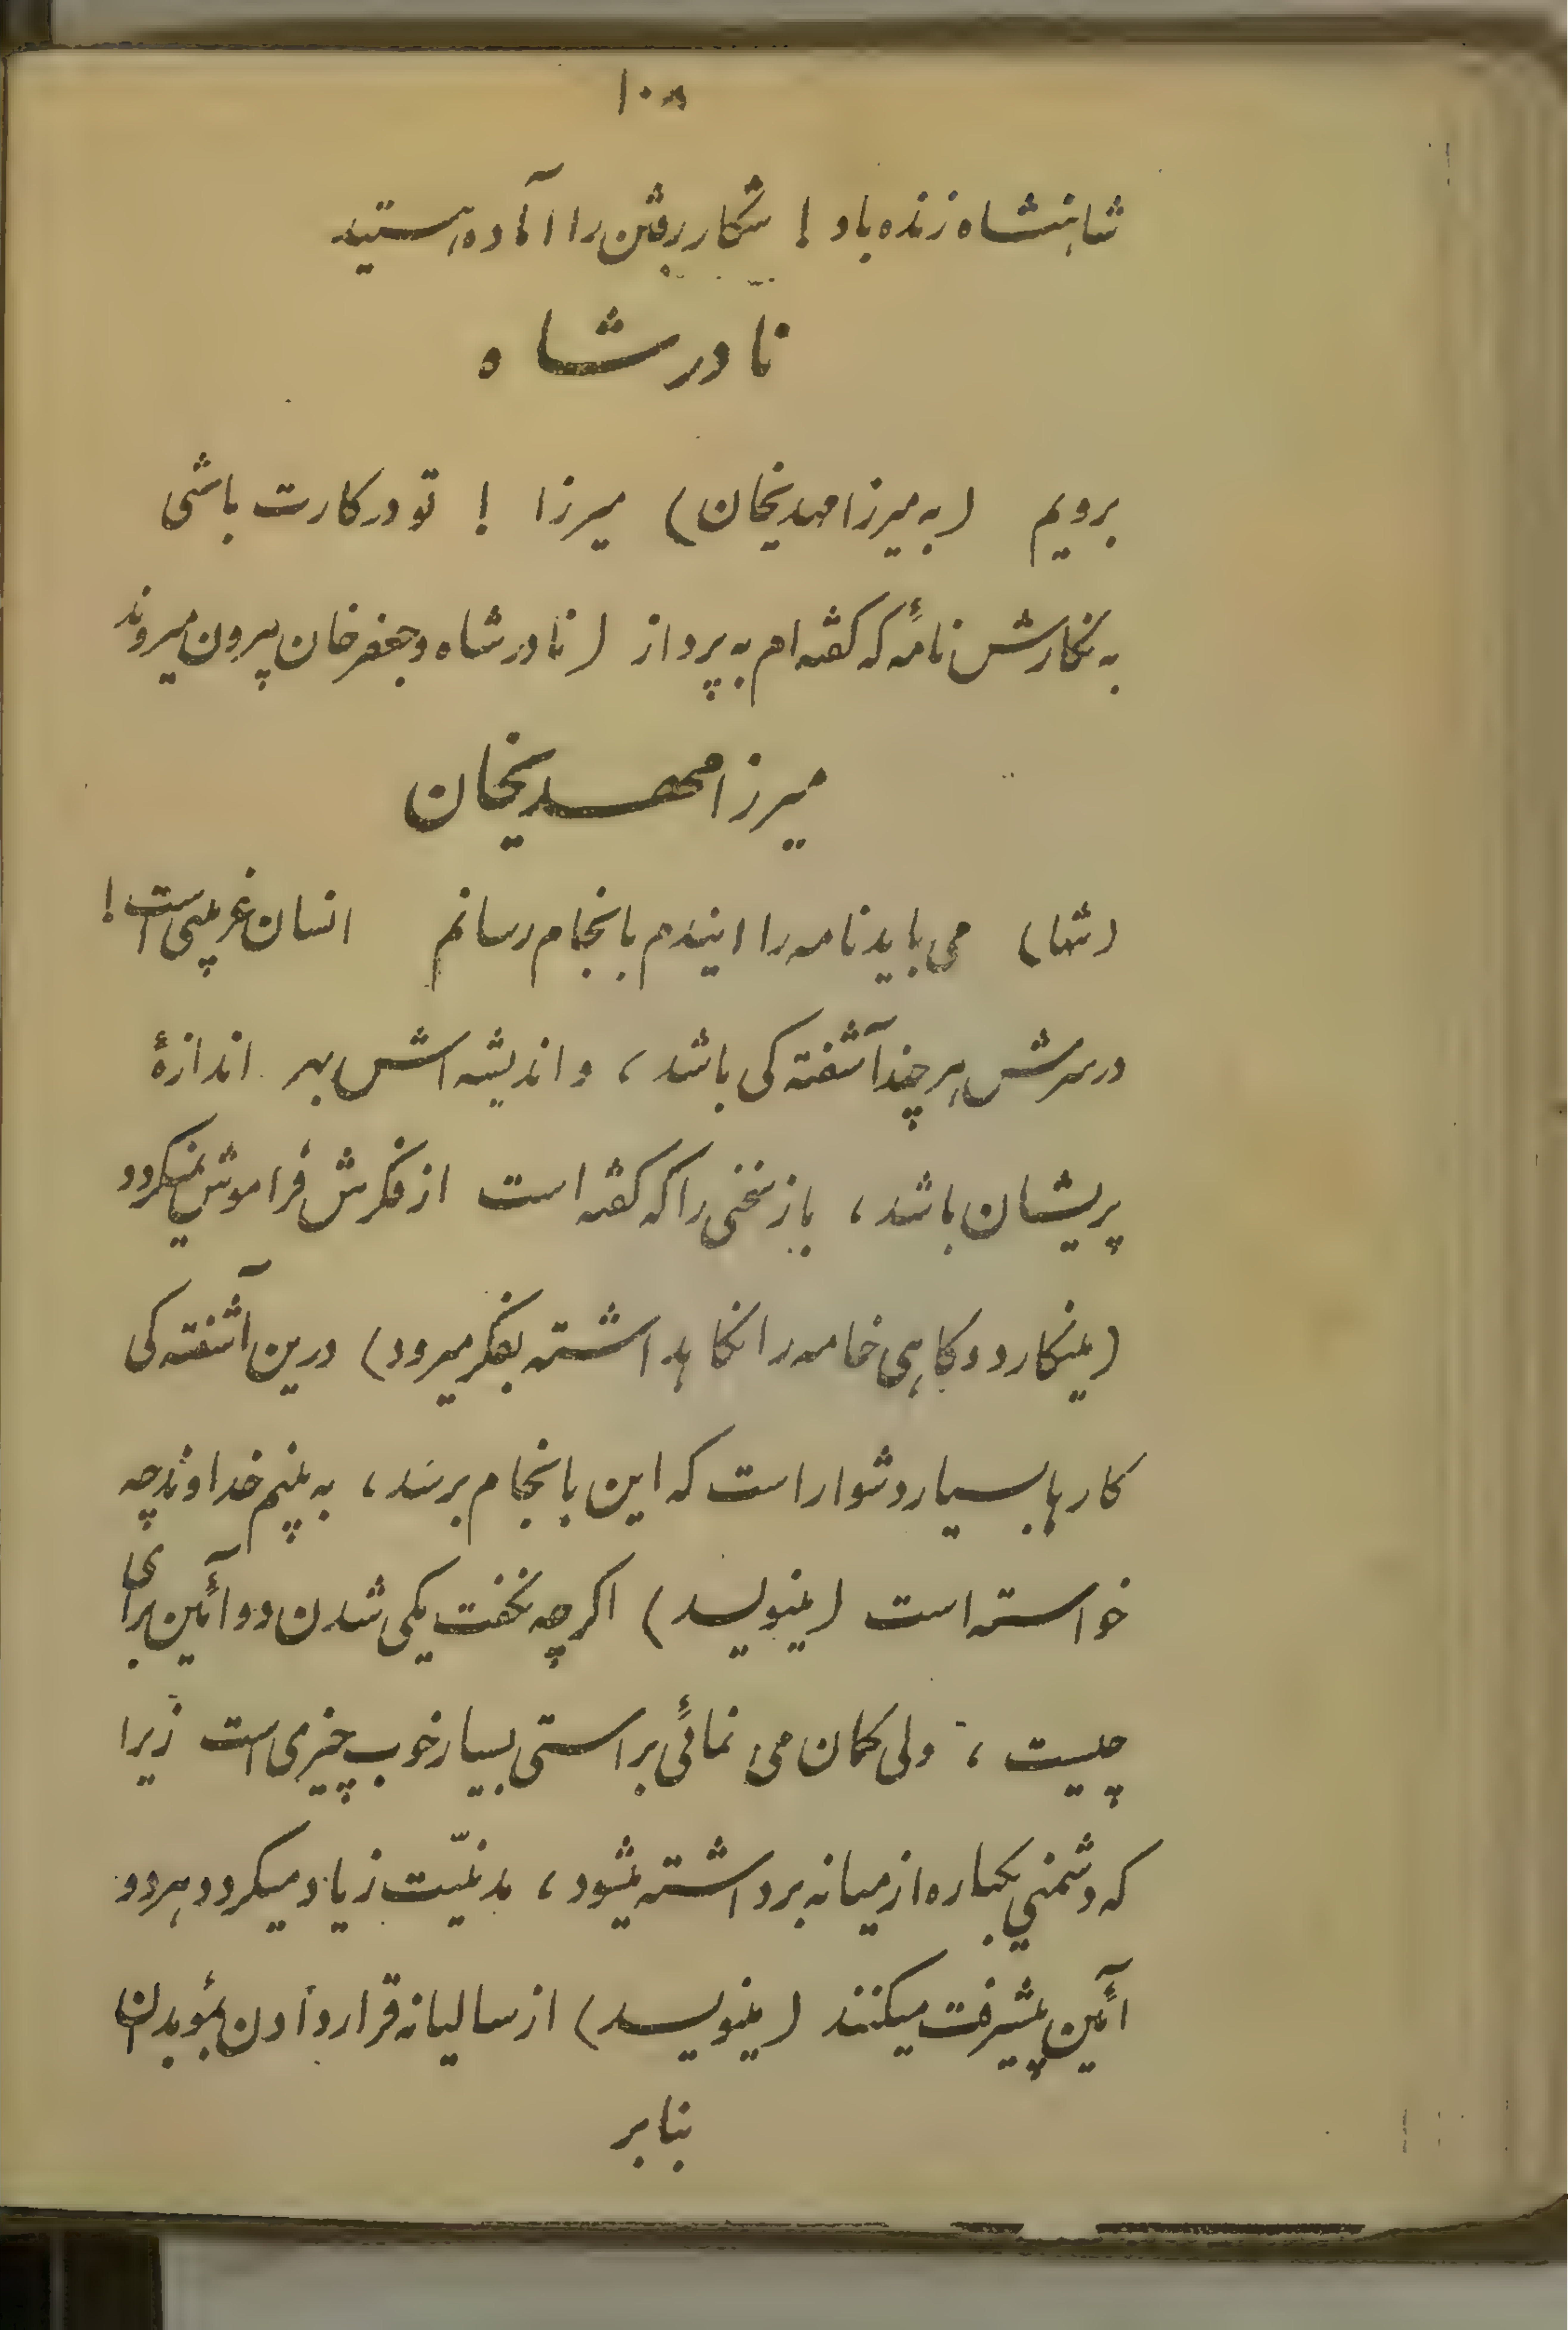 ۱۰۸
شاهنشاه زنده باد ! شکار رفتن را آماده هستید
نادر شاه
برویم (به میرزا مهدیخان) میرزا ! تو در کارت باشی
به نگارش نامهٔ که گفته ام به پرداز (نادر شاه و جعفر خان بیرون میروند
میرزا مهدیخان
(تنها) می باید نامه را ایندم بانجام رسانم انسان غریبی است !
در سرش هر چند آشفته کی باشد ، و اندیشه اش بهر اندازهٔ
پریشان باشد ، باز سخنی را که گفته است از فکرش فراموش نمیگردد
(مینگارد و گاهی خامه را نگاهداشته بفکر میرود) درین آشفته کی
کارها بسیار دشوار است که این بانجام برسد ، به بینم خداوند چه
خواسته است (مینویسد) اگر چه نخست یکی شدن دو آئین برای
چیست ، ولی گمان می نمائی براستی بسیار خوب چیزی است زیرا
که دشمنی یکباره از میانه برداشته میشود ، مدنیّت زیاد میگردد و هر دو
آئین پیشرفت میکنند (مینویسد) از سالیانه قرار دادن بموبدان
بنابر